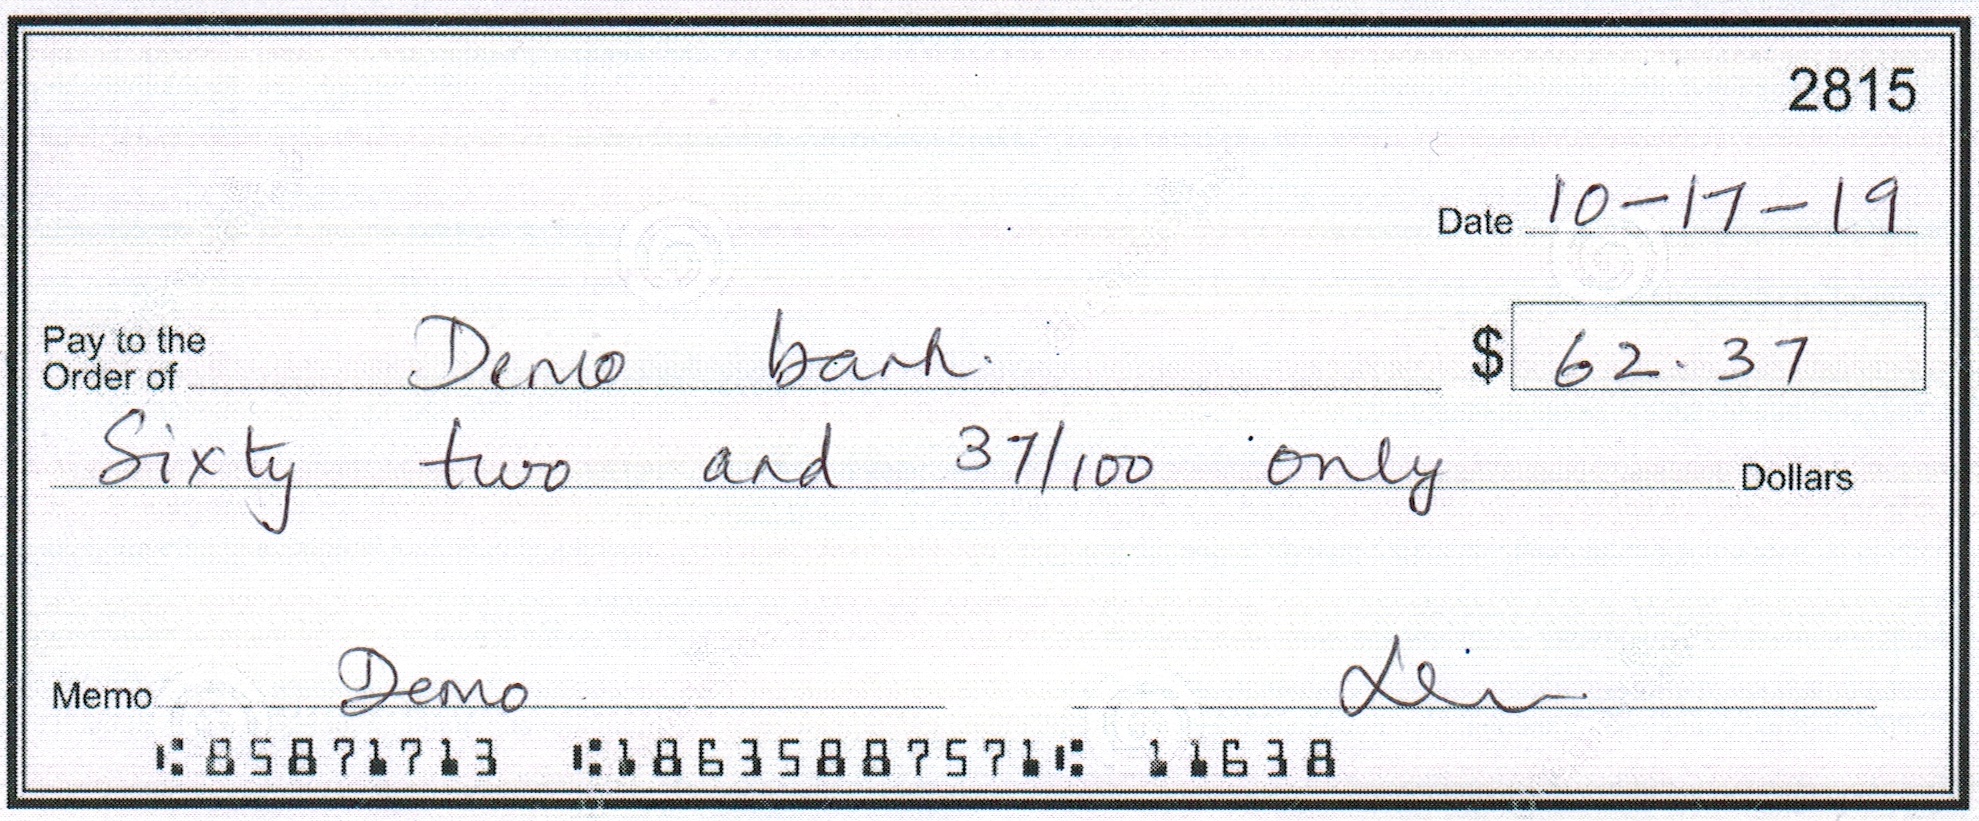 2815
Date 10-17-19
Pay to the
Order of Demo bank. $ 62.37
Sixty two and 37/100 only Dollars
Memo Demo
⑆85871713 ⑆18635887571⑆ 11638